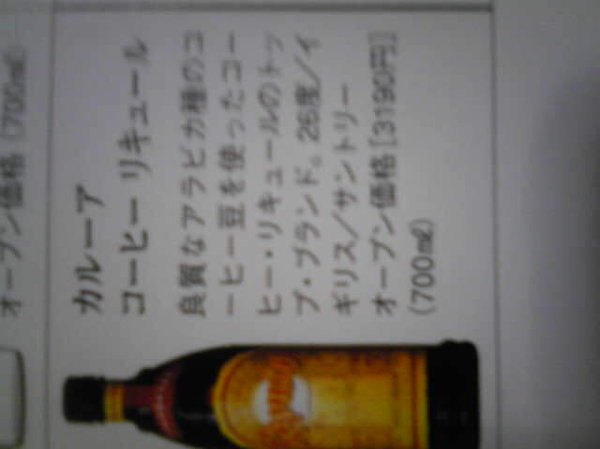 オープン価格(700㎖)
カルーア
コーヒー リキュール
良質なアラビカ種のコ
ーヒー豆を使ったコー
ヒー・リキュールのトッ
プ・ブランド。26度/イ
ギリス/サントリー
オープン価格[3190円]
(700㎖)